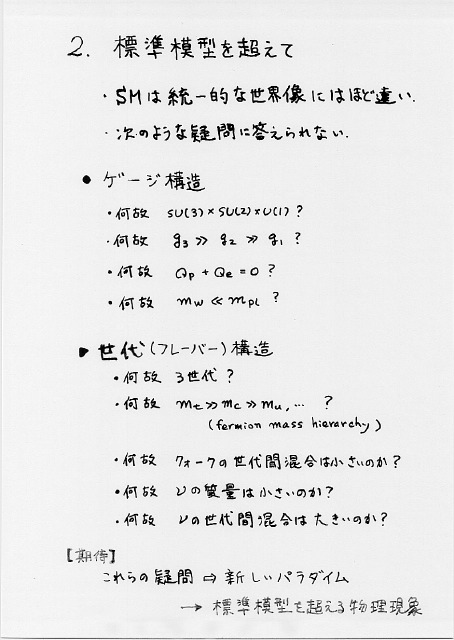 2. 標準模型を超えて
・SMは統一的な世界像にはほど遠い.
・次のような疑問に答えられない.
● ゲージ構造
・何故 SU(3)×SU(2)×U(1) ?
・何故 g₃ ≫ g₂ ≫ g₁ ?
・何故 Qp + Qe = 0 ?
・何故 mw ≪ mpl ?
● 世代(フレーバー)構造
・何故 3世代 ?
・何故 mt ≫ mc ≫ mu, … ?
(fermion mass hierarchy)
・何故 クォークの世代間混合は小さいのか?
・何故 νの質量は小さいのか?
・何故 νの世代間混合は大きいのか?
【期待】
これらの疑問 ⇒ 新しいパラダイム
→ 標準模型を超える物理現象